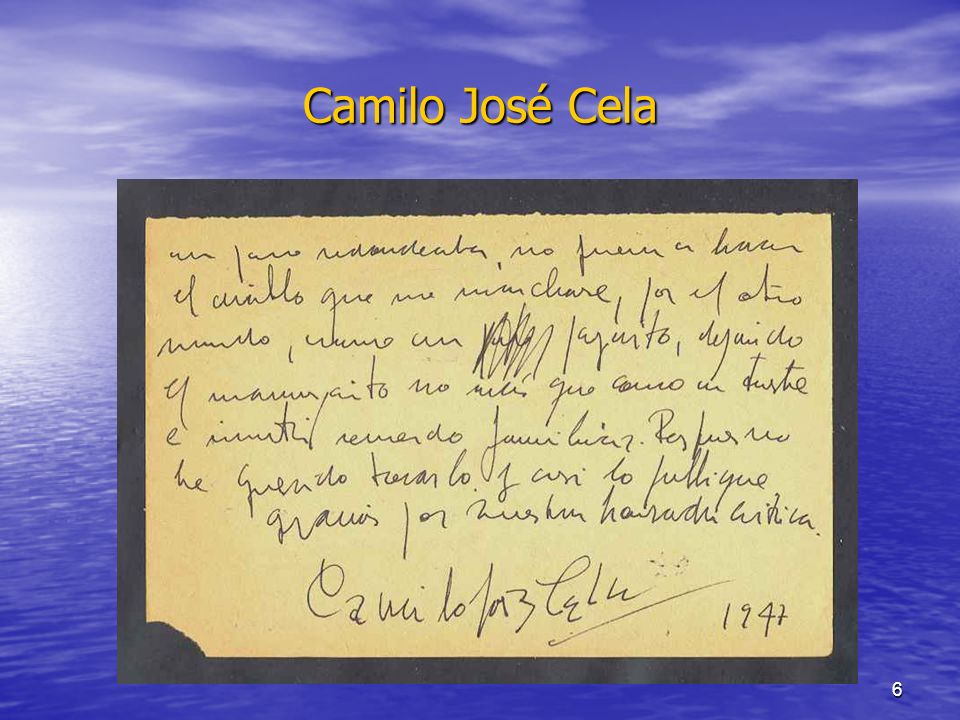 Camilo José Cela
no fuera a
el diablo que me marchase, por el otro
mundo, como un pajarito, dejando
el manuscrito no más que como un triste
e inútil recuerdo familiar. Después no
he querido tocarlo y así lo publiqué,
gracias por vuestra honrada crítica.
Camilo José Cela
1947
6